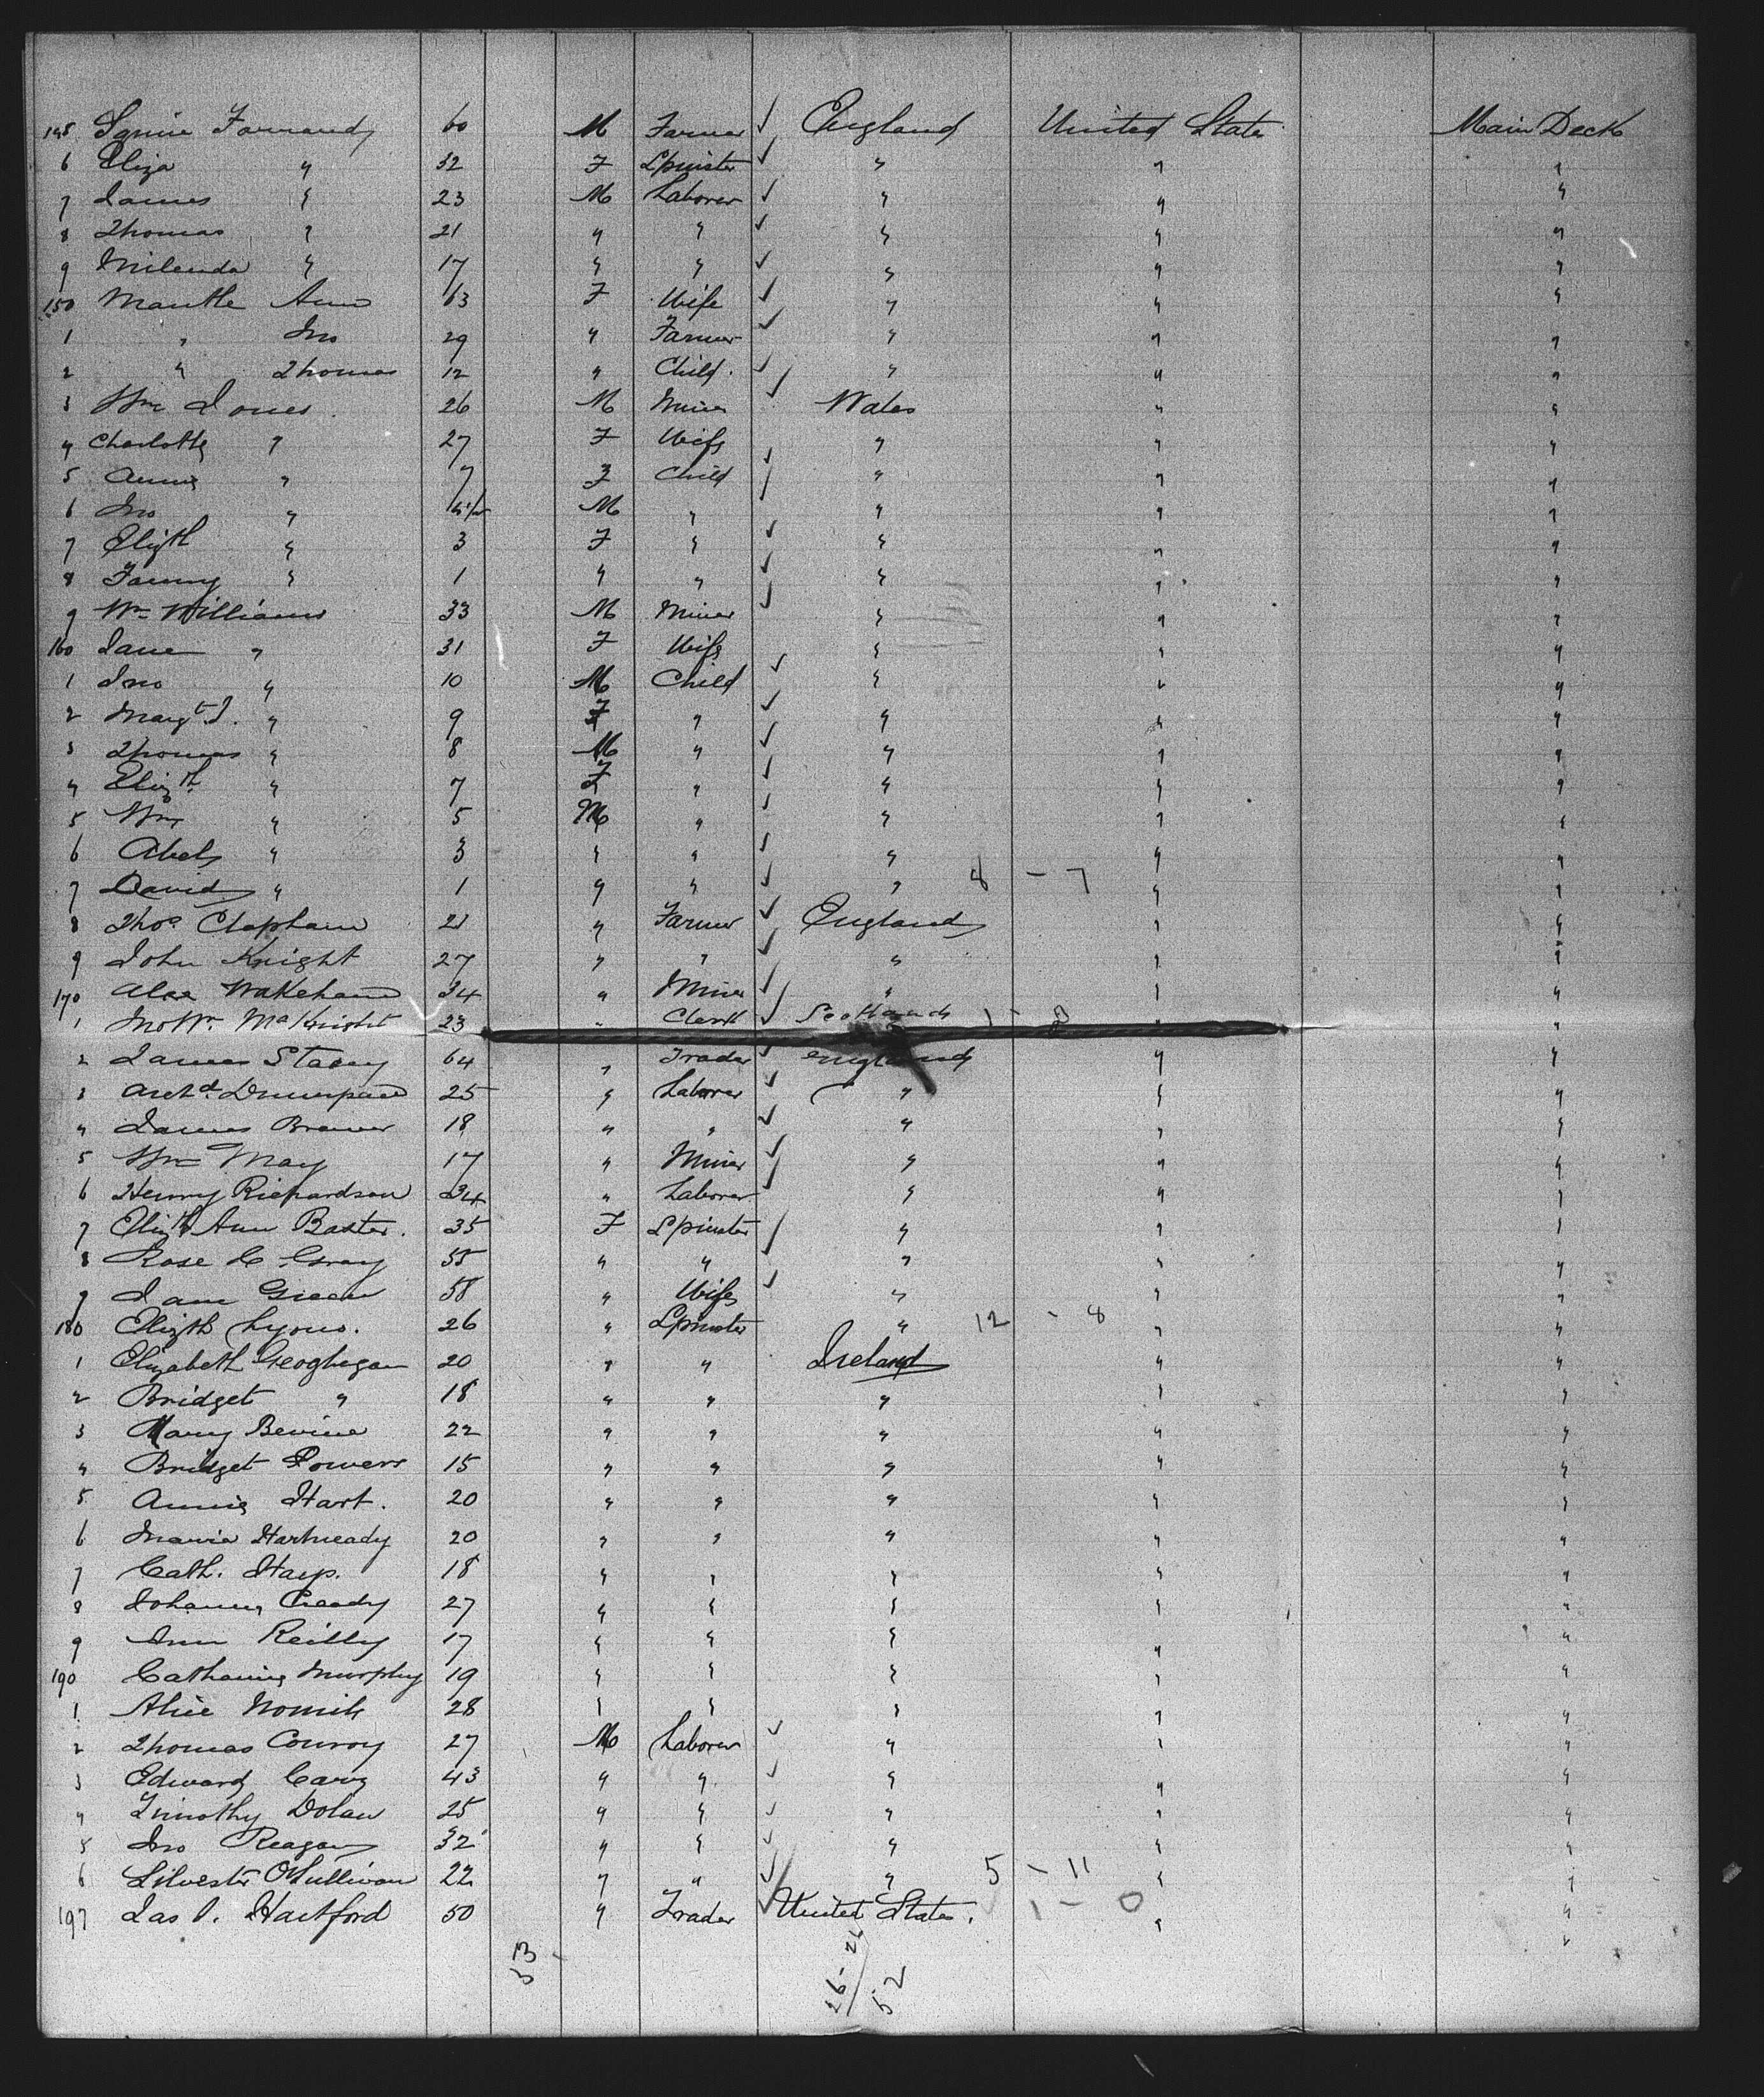 145 Squire Farrandy 60 M Farmer ✓ England United States Main Deck
6 Eliza " 32 F Spinster ✓ " " "
7 James " 23 M Laborer ✓ " " "
8 Thomas " 21 " " ✓ " " "
9 " 17 " " ✓ " " "
150 Mantle Ann 63 F Wife ✓ " " "
1 " Jno 29 " Farmer ✓ " " "
2 " Thomas 12 " Child. ✓ " " "
3 Wm Jones. 26 M Miner ✓ Wales " "
4 Charlotte " 27 F Wife " " "
5 Annie " 7 F Child ✓ " " "
6 Jno " M " " " "
7 Elizth " 3 F " ✓ " " "
8 Fanny " 1 " " ✓ " " "
9 Wm Williams 33 M Miner ✓ " " "
160 Jane " 31 F Wife " " "
1 Jno " 10 M Child ✓ " " "
2 Margt J. " 9 F " ✓ " " "
3 Thomas " 8 M " ✓ " " "
4 Elizth " 7 F " ✓ " " "
5 Wm " 5 M " ✓ " " "
6 Abel " 3 " " ✓ " " "
7 David " 1 " " ✓ " 8 - 7 " "
8 Thos Clapham 21 " Farmer ✓ England " "
9 John Knight 27 " " ✓ " " "
170 Alex Wakeham 34 " Miner ✓ " " "
1 Jno Wm McKnight 23 " Clerk ✓ Scotland 1 - " "
2 James Stacey 64 " Trader ✓ England " "
3 Archd 25 " Laborer ✓ " " "
4 James Brewer 18 " " ✓ " " "
5 Wm May 17 " Miner ✓ " " "
6 Henry Richardson 34 " Laborer ✓ " " "
7 Elizth Ann Baxter. 35 F Spinster ✓ " " "
8 Rose C Gray 55 " " " " "
9 Jane Green 58 " Wife ✓ " " "
180 Elizth Lyons. 26 " Spinster " 12 - 8 " "
1 Elizabeth Geoghegan 20 " " Ireland " "
2 Bridget " 18 " " " " "
3 Mary Bevine 22 " " " " "
4 Bridget Powers 15 " " " " "
5 Annie Hart. 20 " " " " "
6 Maria Hartneady 20 " " " " "
7 Cath. 18 " " " " "
8 Johanna 27 " " " " "
9 Ann Reilly 17 " " " " "
190 Catharine Murphy 19 " " " " "
1 Alice 28 " " " " "
2 Thomas Conroy 27 M Laborer ✓ " " "
3 Edward Carey 43 " " ✓ " " "
4 Timothy Dolan 25 " " ✓ " " "
5 Jno Reagan 32 " " ✓ " " "
6 Silvester O'Sullivan 22 " " ✓ " 5 - 11 " "
197 Jas Hartford 50 " Trader ✓ United States. 1 - 0 " "
26 - 26
52